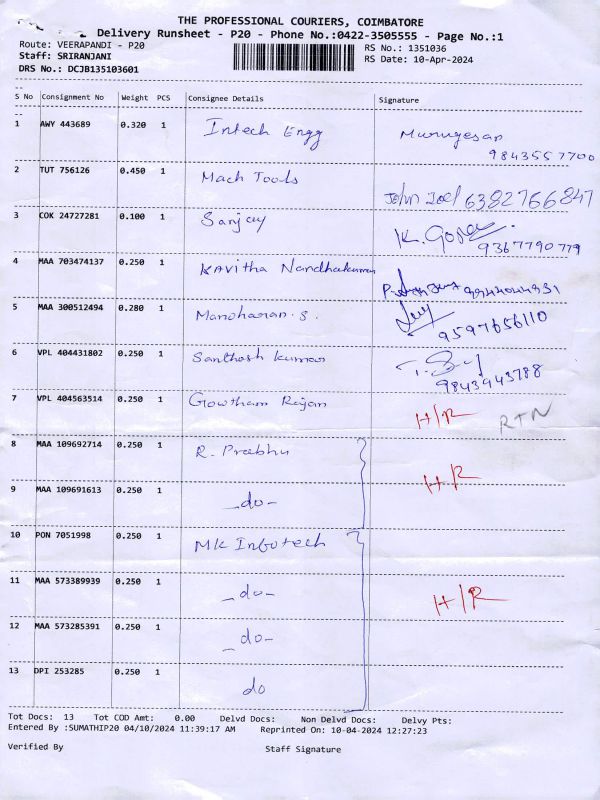 THE PROFESSIONAL COURIERS, COIMBATORE
Delivery Runsheet - P20 - Phone No.:0422-3505555 - Page No.:1
Route: VEERAPANDI - P20 RS No.: 1351036
Staff: SRIRANJANI RS Date: 10-Apr-2024
DRS No.: DCJB135103601
S No Consignment No Weight PCS Consignee Details Signature
1 AWY 443689 0.320 1 Intech Engg Murugesan
9843557700
2 TUT 756126 0.450 1 Mach Tools
John Joel 6382766847
3 COK 24727281 0.100 1 Sanjay
K. Gopal
9367790779
4 MAA 703474137 0.250 1 Kavitha Nandhakumar
5 MAA 300512494 0.280 1 Manoharan. S.
9597656110
6 VPL 404431802 0.250 1 Santhosh Kumar
9843943788
7 VPL 404563514 0.250 1 Gowtham Rajan H/R RTN
8 MAA 109692714 0.250 1 R. Prabhu H/R
9 MAA 109691613 0.250 1 -do-
10 PON 7051998 0.250 1 MK Infotech
11 MAA 573389939 0.250 1 -do- H/R
12 MAA 573285391 0.250 1 -do-
13 DPI 253285 0.250 1 do
Tot Docs: 13 Tot COD Amt: 0.00 Delvd Docs: Non Delvd Docs: Delvy Pts:
Entered By :SUMATHIP20 04/10/2024 11:39:17 AM Reprinted On: 10-04-2024 12:27:23
Verified By Staff Signature